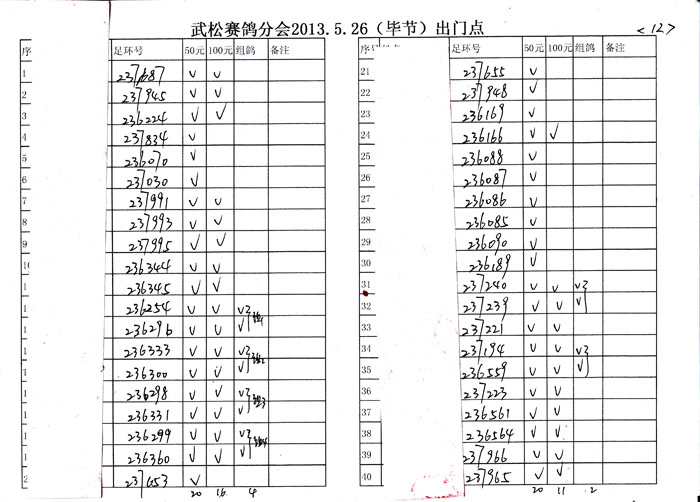 武松赛鸽分会2013.5.26（毕节）出门点
<12>
序 足环号 50元 100元 组鸽 备注
1 237687 V V
2 237945 V V
3 236224 V V
4 237834 V
5 236070 V
6 237030 V
7 237991 V V
8 237993 V V
9 237995 V V
10 236344 V V
1 236345 V V
1 236254 V V V
1 236296 V V V
1 236333 V V V
1 236300 V V V
1 236298 V V V
1 236331 V V V
1 236299 V V V
1 236360 V V V
2 237653 V
20 16 4
足环号 50元 100元 组鸽 备注
21 237655 V
22 237948 V
23 236169 V
24 236166 V V
25 236088 V
26 236087 V
27 236086 V
28 236085 V
29 236090 V
30 236189 V
31 237240 V V V
32 237239 V V V
33 237221 V V
34 237194 V V V
35 236559 V V V
36 237223 V V
37 236561 V V
38 236564 V V
39 237966 V V
40 237965 V V
20 11 2